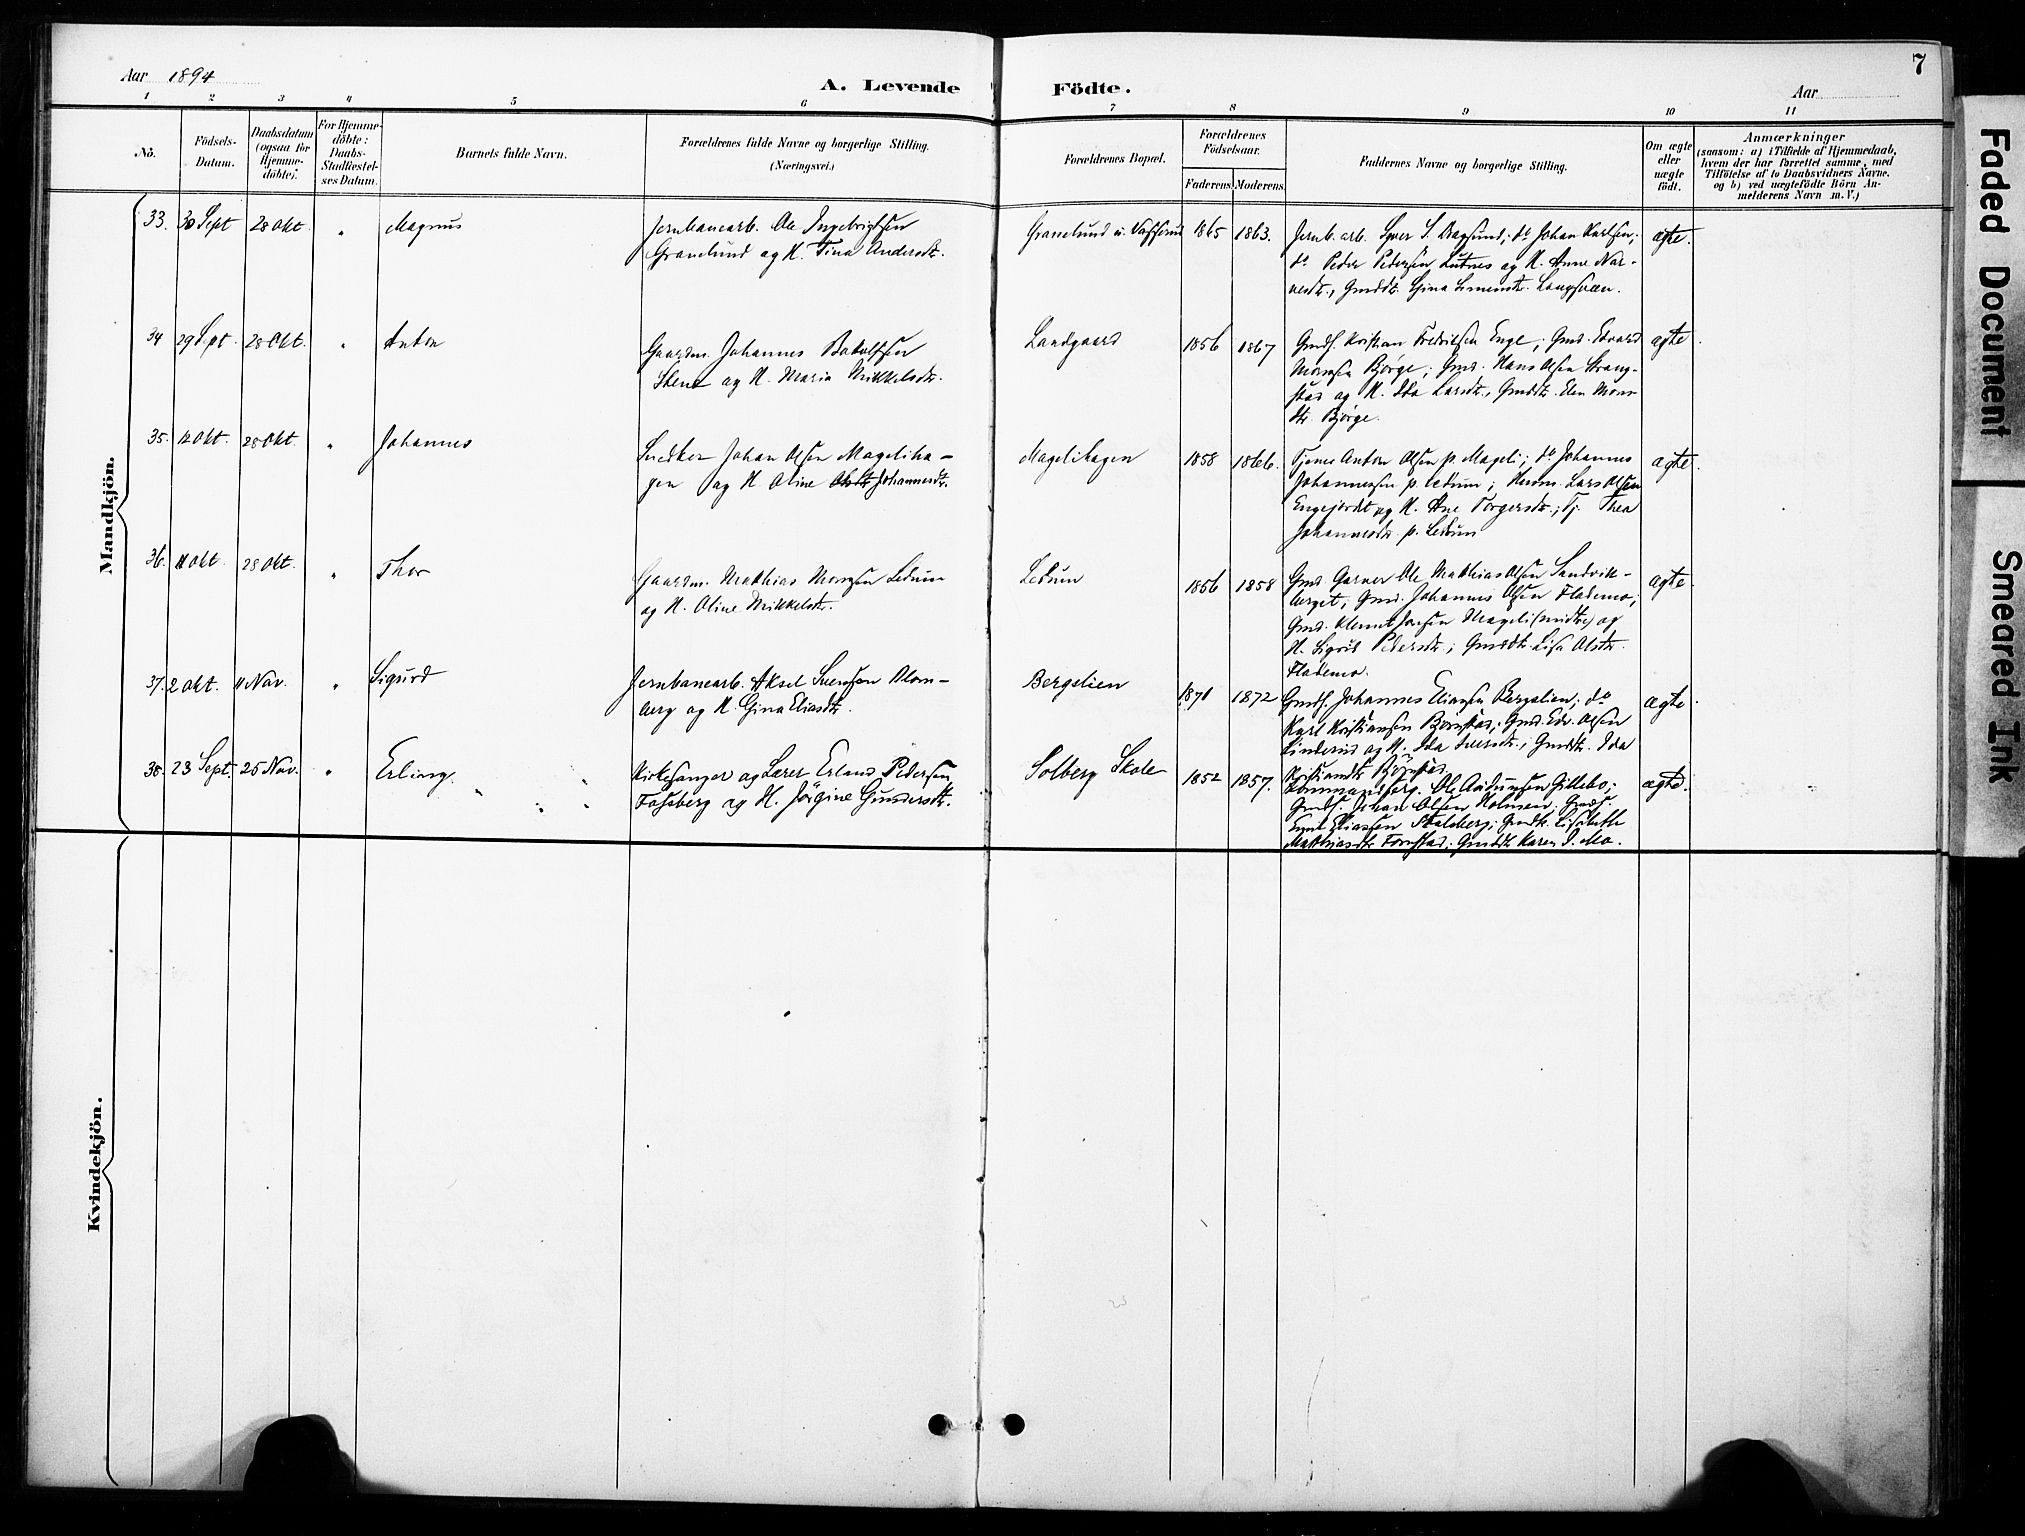 7
Aar 1894
A. Levende Födte.
Aar
1 2 3 4 5 6 7 8 9 10 11
No.
Födsels-
Datum.
Daabsdatum
(ogsaa for
Hjemme-
döbte).
For Hjemme-
döbte:
Daabs-
Stadfæstel-
ses Datum.
Barnets fulde Navn.
Forældrenes fulde Navne og borgerlige Stilling.
(Næringsvei.)
Forældrenes Bopæl.
Forældrenes
Födselsaar.
Faderens. Moderens.
Faddernes Navne og borgerlige Stilling.
Om ægte
eller
uægte
födt.
Anmærkninger
(saasom: a) i Tilfælde af Hjemmedaab,
hvem der har forrettet samme, med
Tilföielse af to Daabsvidners Navne.
og b) ved uægtefödte Börn An-
melderens Navn m. V.)
Mandkjön.
33. 30 Sept 28 Okt. " Magnus
Jernbanearb. Ole Ingebrigtsen
Granelund og H. Tina Andersdtr.
Granelund 1865 1863.
Jernb. arb. Syver S. Dragsund; do Johan Karlsen;
do Peder Pedersen Lutnes og H. Anne Nar-
vesdtr., Gmddtr. Gina Simensdtr.
ægte.
34 29 Sept. 28 Okt. " Anton
Gaardm. Johannes
Stene og H. Maria Mikkelsdtr.
Landgaard 1856 1867
Gmds. Kristian Fredriksen Enge; Gmd. Edvard
Monsen Bjørge; Gmd. Hans Olsen Strang-
stad og H. Ida Larsdtr., Gmddtr. Elen Mons-
dtr. Bjørge.
ægte
35. 12 Okt. 28 Okt. " Johannes
Snedker Johan Olsen Mageliha-
gen og H. Oline Olsdtr Johannesdtr.
Magelihagen 1858 1866.
Tjener Anton Olsen p. Mageli; do Johannes
Johannessen p. Ledum; Lars Olsen
Engejordet og H. Ane Torgersdtr.; Tj. Thea
Johannesdtr. p. Ledum
ægte.
36. 11 Okt. 28 Okt. " Thor
Gaardm. Matthias Monsen Ledum
og H. Oline Mikkelsdtr.
Ledum 1856 1858
Gmd. Garver Ole Matthias Olsen Sandvik-
berget; Gmd. Johannes Olsen Flademo;
Gmd. Klemet Jonsen Mageli (midtre) og
H. Sigrid Pedersdtr.; Gmddtr. Lisa Olsdtr.
Flademo.
ægte
37. 2 Okt. 11 Nov. " Sigurd
Jernbanearb. Aksel Svensen Blom-
berg og H. Gina Eliasdtr.
Bergslien 1871 1872
Gmds. Johannes Eliassen Bergslien; do
Karl Kristiansen Bjørnstad; Gmd. Edv. Olsen
Linderud og H. Ida Iversdtr.; Gmddtr. Ida
Kristiansdtr. Bjørnstad.
ægte
38. 23 Sept. 25 Nov. " Erling
Kirkesanger og Lærer Erland Pedersen
Fossberg og H. Jørgine Gundersdtr.
Solberg Skole 1852 1857.
Ole Gillebo;
Gmds. Johan Olsen Holmen; Gmds.
Emil Eliassen Stalsberg; Gmddtr. Lisabeth
Matthiasdtr. Formstad; Gmddtr Karen P. Mo.
ægte.
Kvindekjön.
Faded Document
Smeared Ink